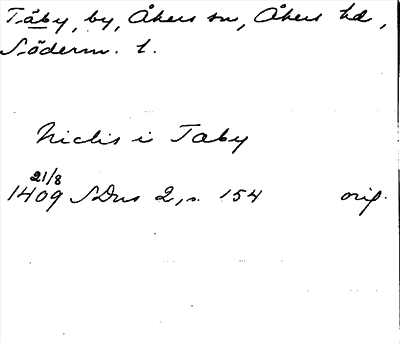 Tåby, by, Åkers sn, Åkers hd,
Söderm. l.
Niclis i Taby
21/8
1409 SDns 2, s. 154 orig.